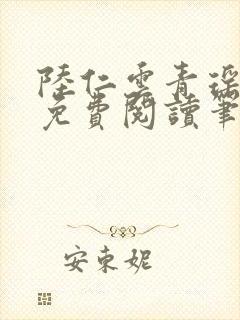 陸仁雲青瑤
免費閱讀筆
安東妮